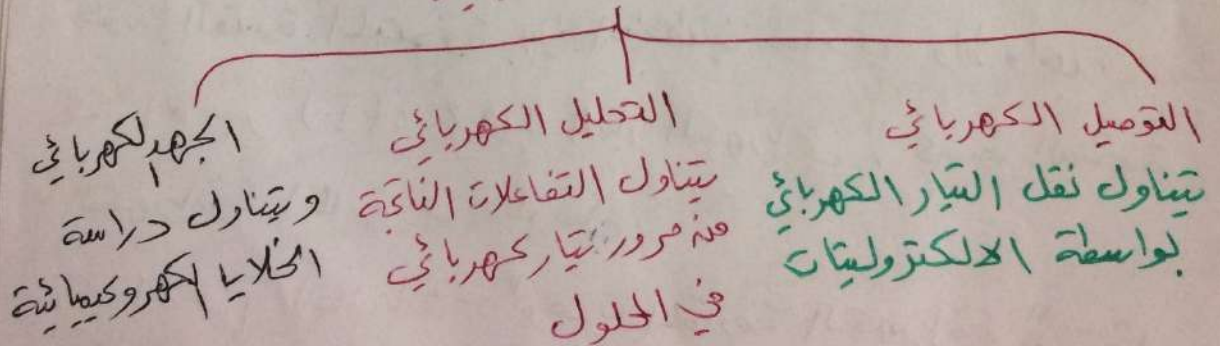 التوصيل الكهربائي
يتناول نقل التيار الكهربائي
بواسطة الالكتروليتات
التحليل الكهربائي
يتناول التفاعلات الناتجة
من مرور تيار كهربائي
في المحلول
الجهد الكهربائي
ويتناول دراسة
الخلايا الكهروكيميائية